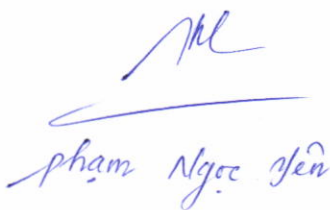 phạm Ngọc Yên